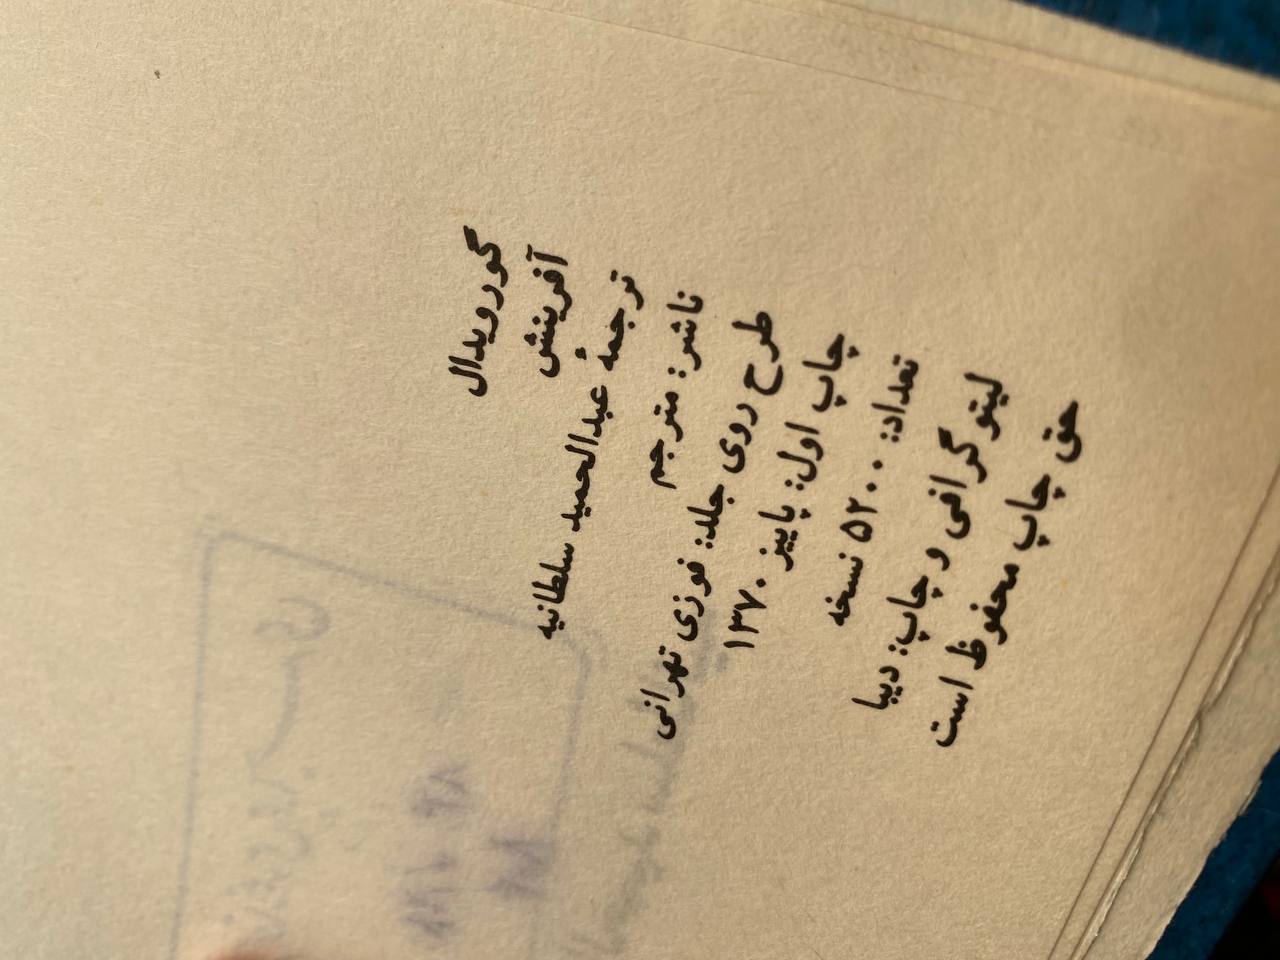 گورویدال
آفرینش
ترجمهٔ عبدالحمید سلطانیه
ناشر: مترجم
طرح روی جلد: فوزی تهرانی
چاپ اول: پاییز ۱۳۷۰
تعداد: ۵۲۰۰ نسخه
لیتوگرافی و چاپ: دیبا
حق چاپ محفوظ است